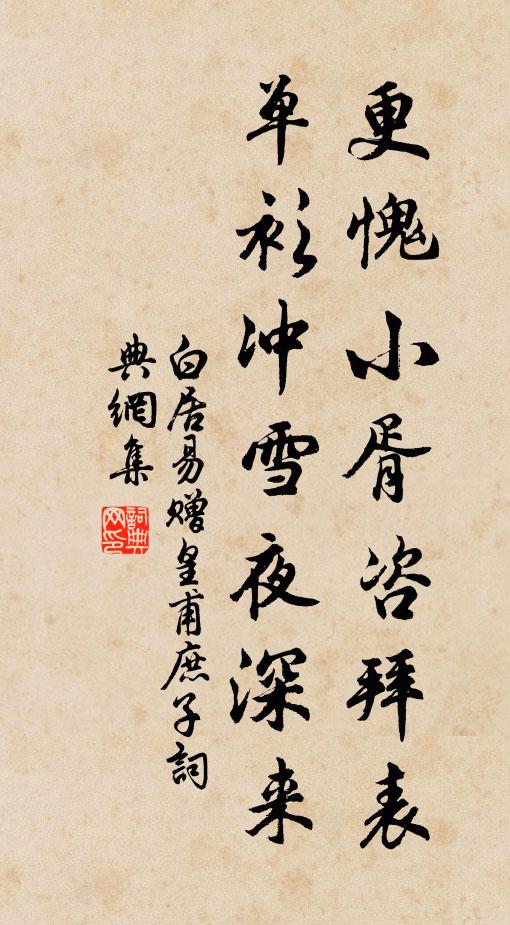 更愧小胥咨拜表
单衫冲雪夜深来
白居易赠皇甫庶子詞
典網集
詞典
网印